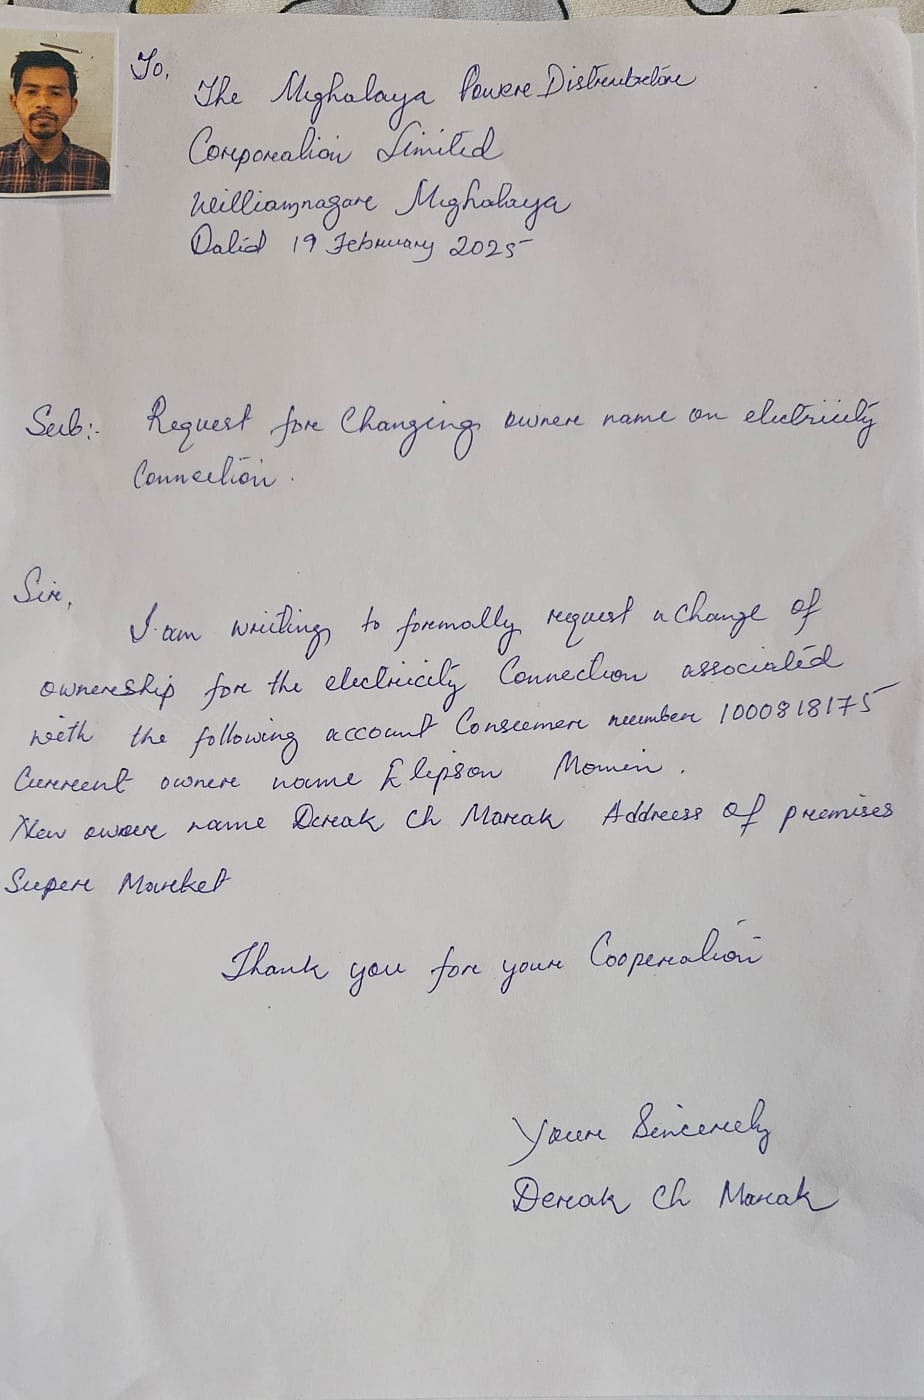 To,
The Meghalaya Power Distribution
Corporation Limited
Williamnagar Meghalaya
Dated 19 February 2025
Sub:- Request for Changing owner name on electricity
Connection.
Sir,
I am writing to formally request a change of
ownership for the electricity Connection associated
with the following account Consumer number 1000818175
Current owner name Elipson Momin.
New owner name Derak Ch Marak Address of premises
Super Market
Thank you for your Cooperation
Your Sincerely
Derak Ch Marak